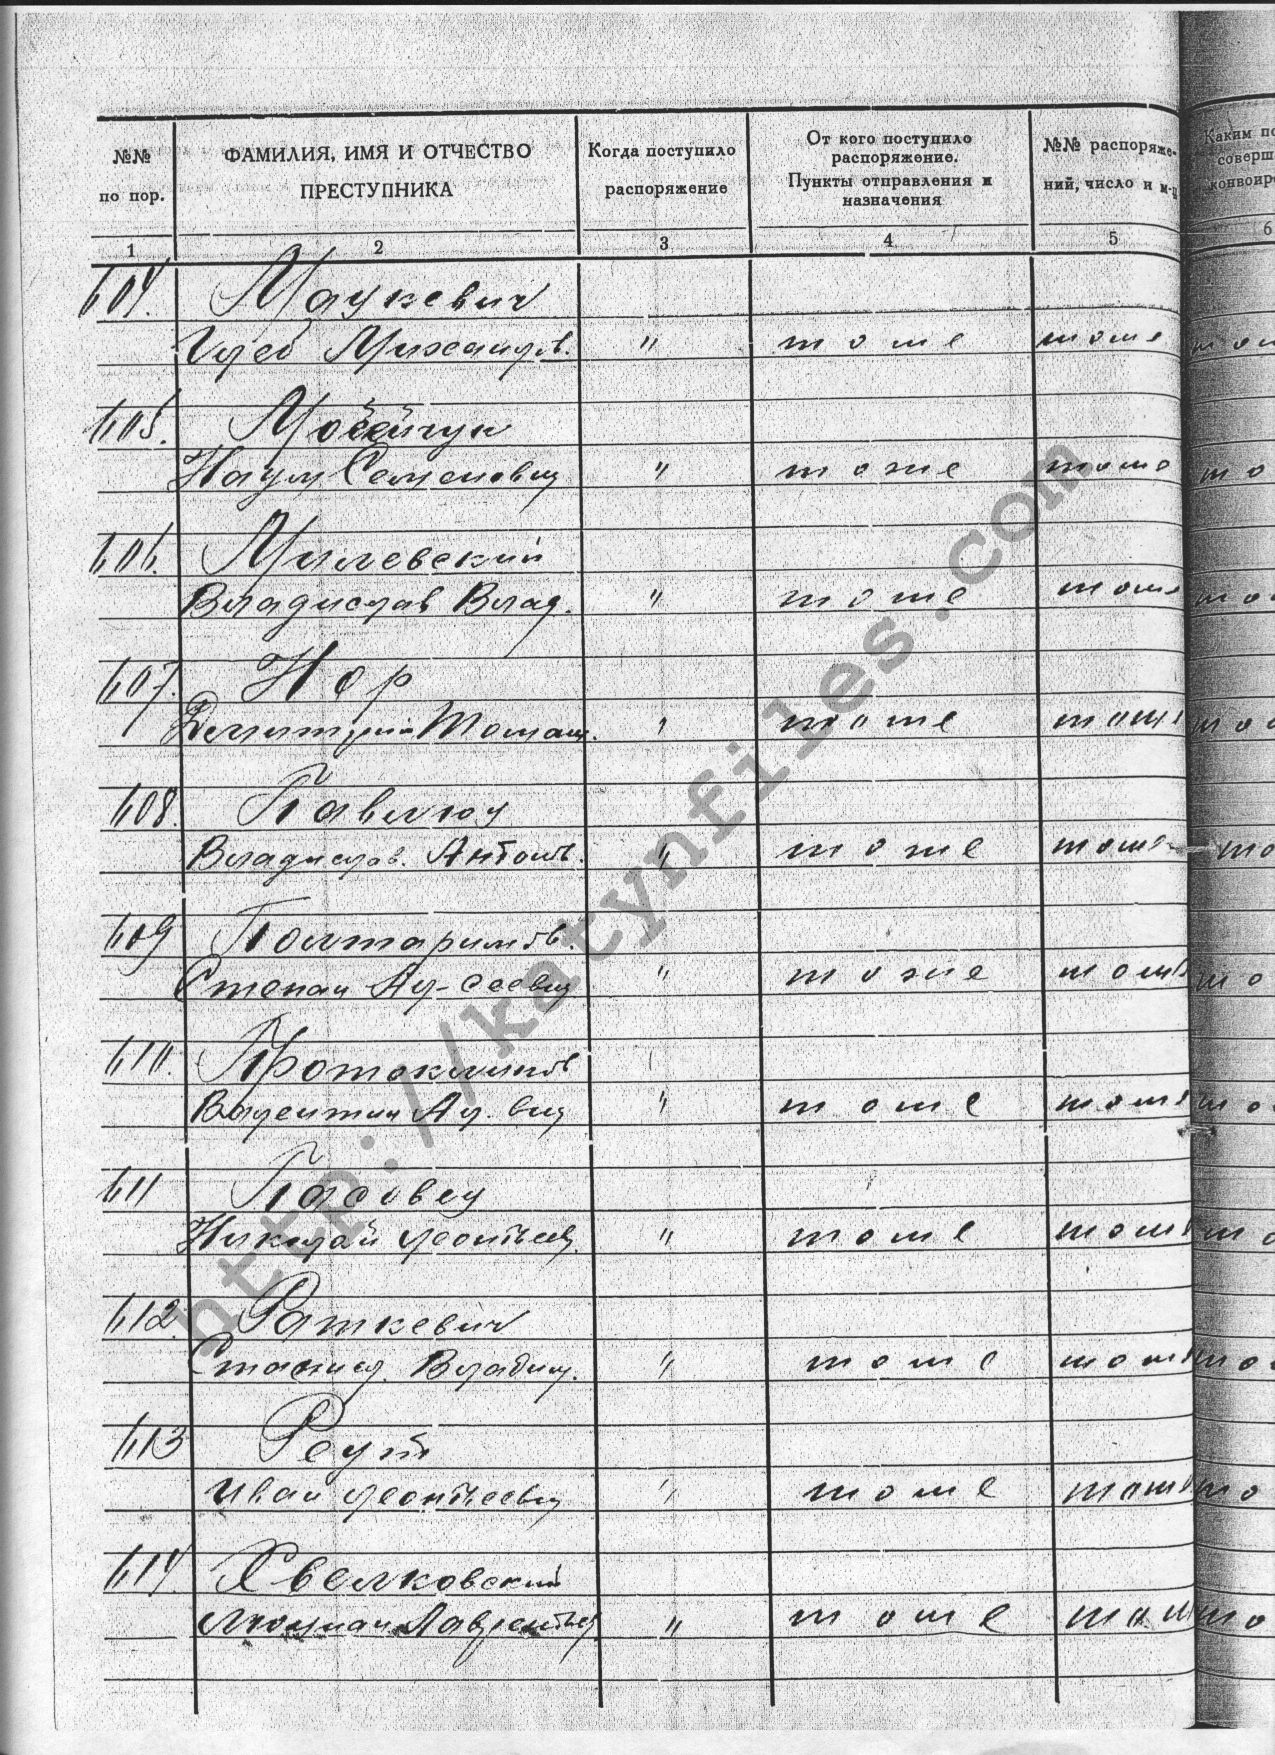 №№ по пор.
ФАМИЛИЯ, ИМЯ И ОТЧЕСТВО ПРЕСТУПНИКА
Когда поступило распоряжение
От кого поступило распоряжение.
Пункты отправления и назначения
№№ распоряже-
ний, число и м-ц
Каким по
соверш
конвоир
1 2 3 4 5 6
604. Мацкевич
Глеб Михайлов. " тоже тоже то
605. Мосейчук
Наум Семенович " тоже тоже то
606. Милевский
Владислав Влад. " тоже тоже то
607. Нор
Дмитрий Томаш. " тоже тоже то
608. Павлюц
Владислав. Антонов. " тоже тоже то
609
Степан " тоже тоже то
610.
Валентин " тоже тоже то
611
Николай Леонтьев. " тоже тоже то
612. Раткевич
Станисл. " тоже тоже то
613 Реут
Иван Леонтьевич " тоже тоже то
614. Хвелковский
Лаврентьев " тоже тоже то
http://katynfiles.com